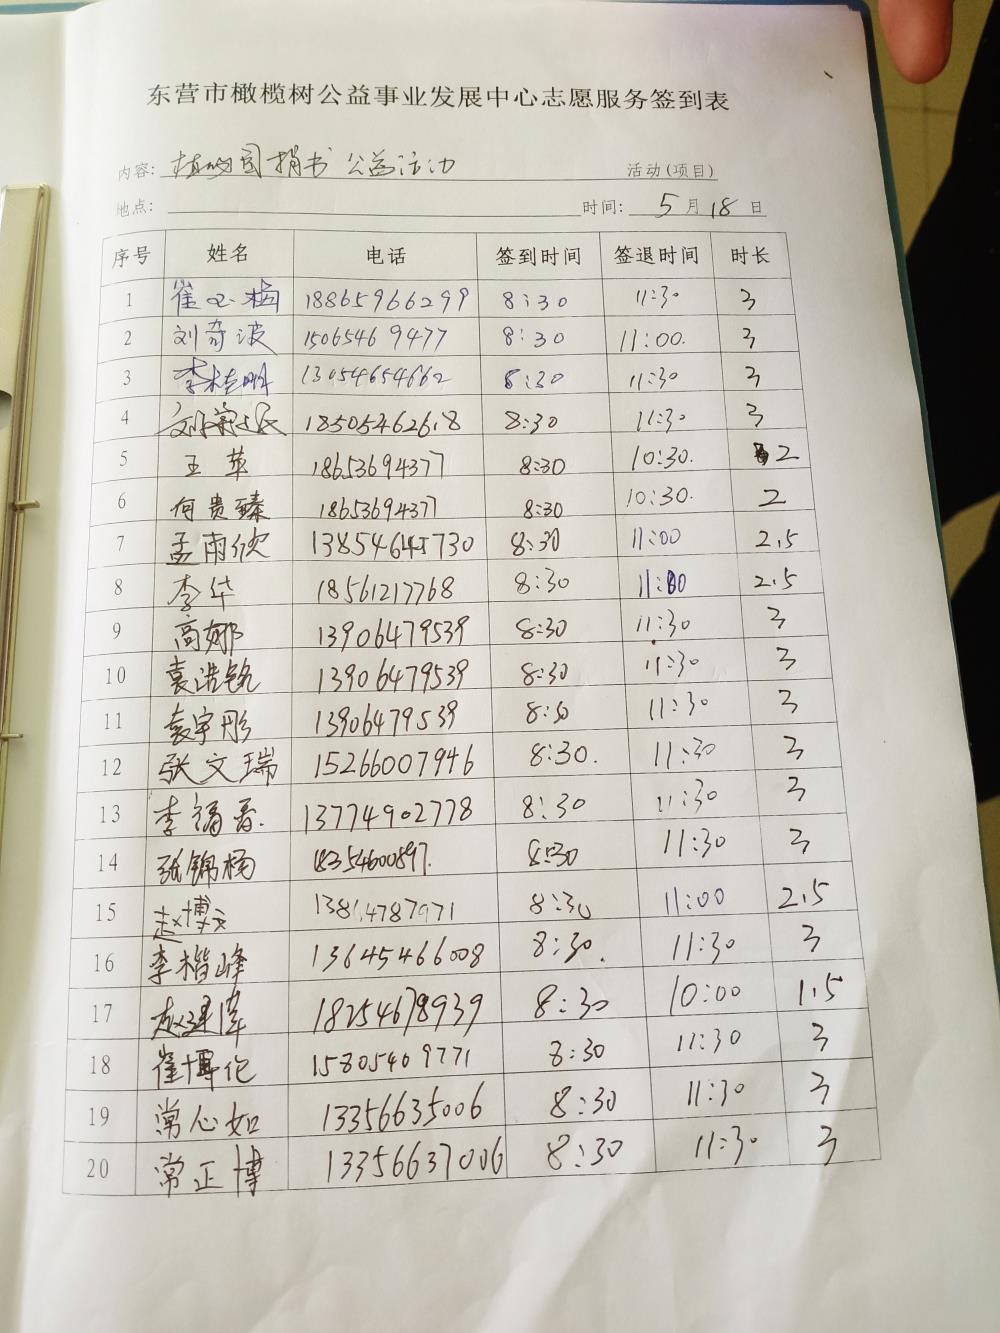 东营市橄榄树公益事业发展中心志愿服务签到表
内容: 植物园捐书 公益活动 活动(项目)
地点: 时间: 5月18日
序号 姓名 电话 签到时间 签退时间 时长
1 崔 梅 18865966299 8:30 11:30 3
2 刘奇波 15065469477 8:30 11:00. 3
3 李桂明 13054654662 8:30 11:30 3
4 刘 18505462618 8:30 11:30 3
5 王苹 18653694377 8:30 10:30. 2
6 何贵臻 18653694377 8:30 10:30. 2
7 孟雨欣 13854645730 8:30 11:00 2.5
8 李华 18561217768 8:30 11:00 2.5
9 高娜 13906479539 8:30 11:30 3
10 袁浩铭 13906479539 8:30 11:30 3
11 袁宇彤 13906479539 8:30 11:30 3
12 张文瑞 15266007946 8:30. 11:30 3
13 李 13774902778 8:30 11:30 3
14 张锦楠 18354600897. 8:30 11:30 3
15 赵博文 8:30 11:00 2.5
16 李楷峰 13645466008 8:30. 11:30 3
17 赵建津 18254678939 8:30 10:00 1.5
18 崔博伦 15805409771 8:30 11:30 3
19 常心如 13356635006 8:30 11:30 3
20 常正博 13356637006 8:30 11:30 3